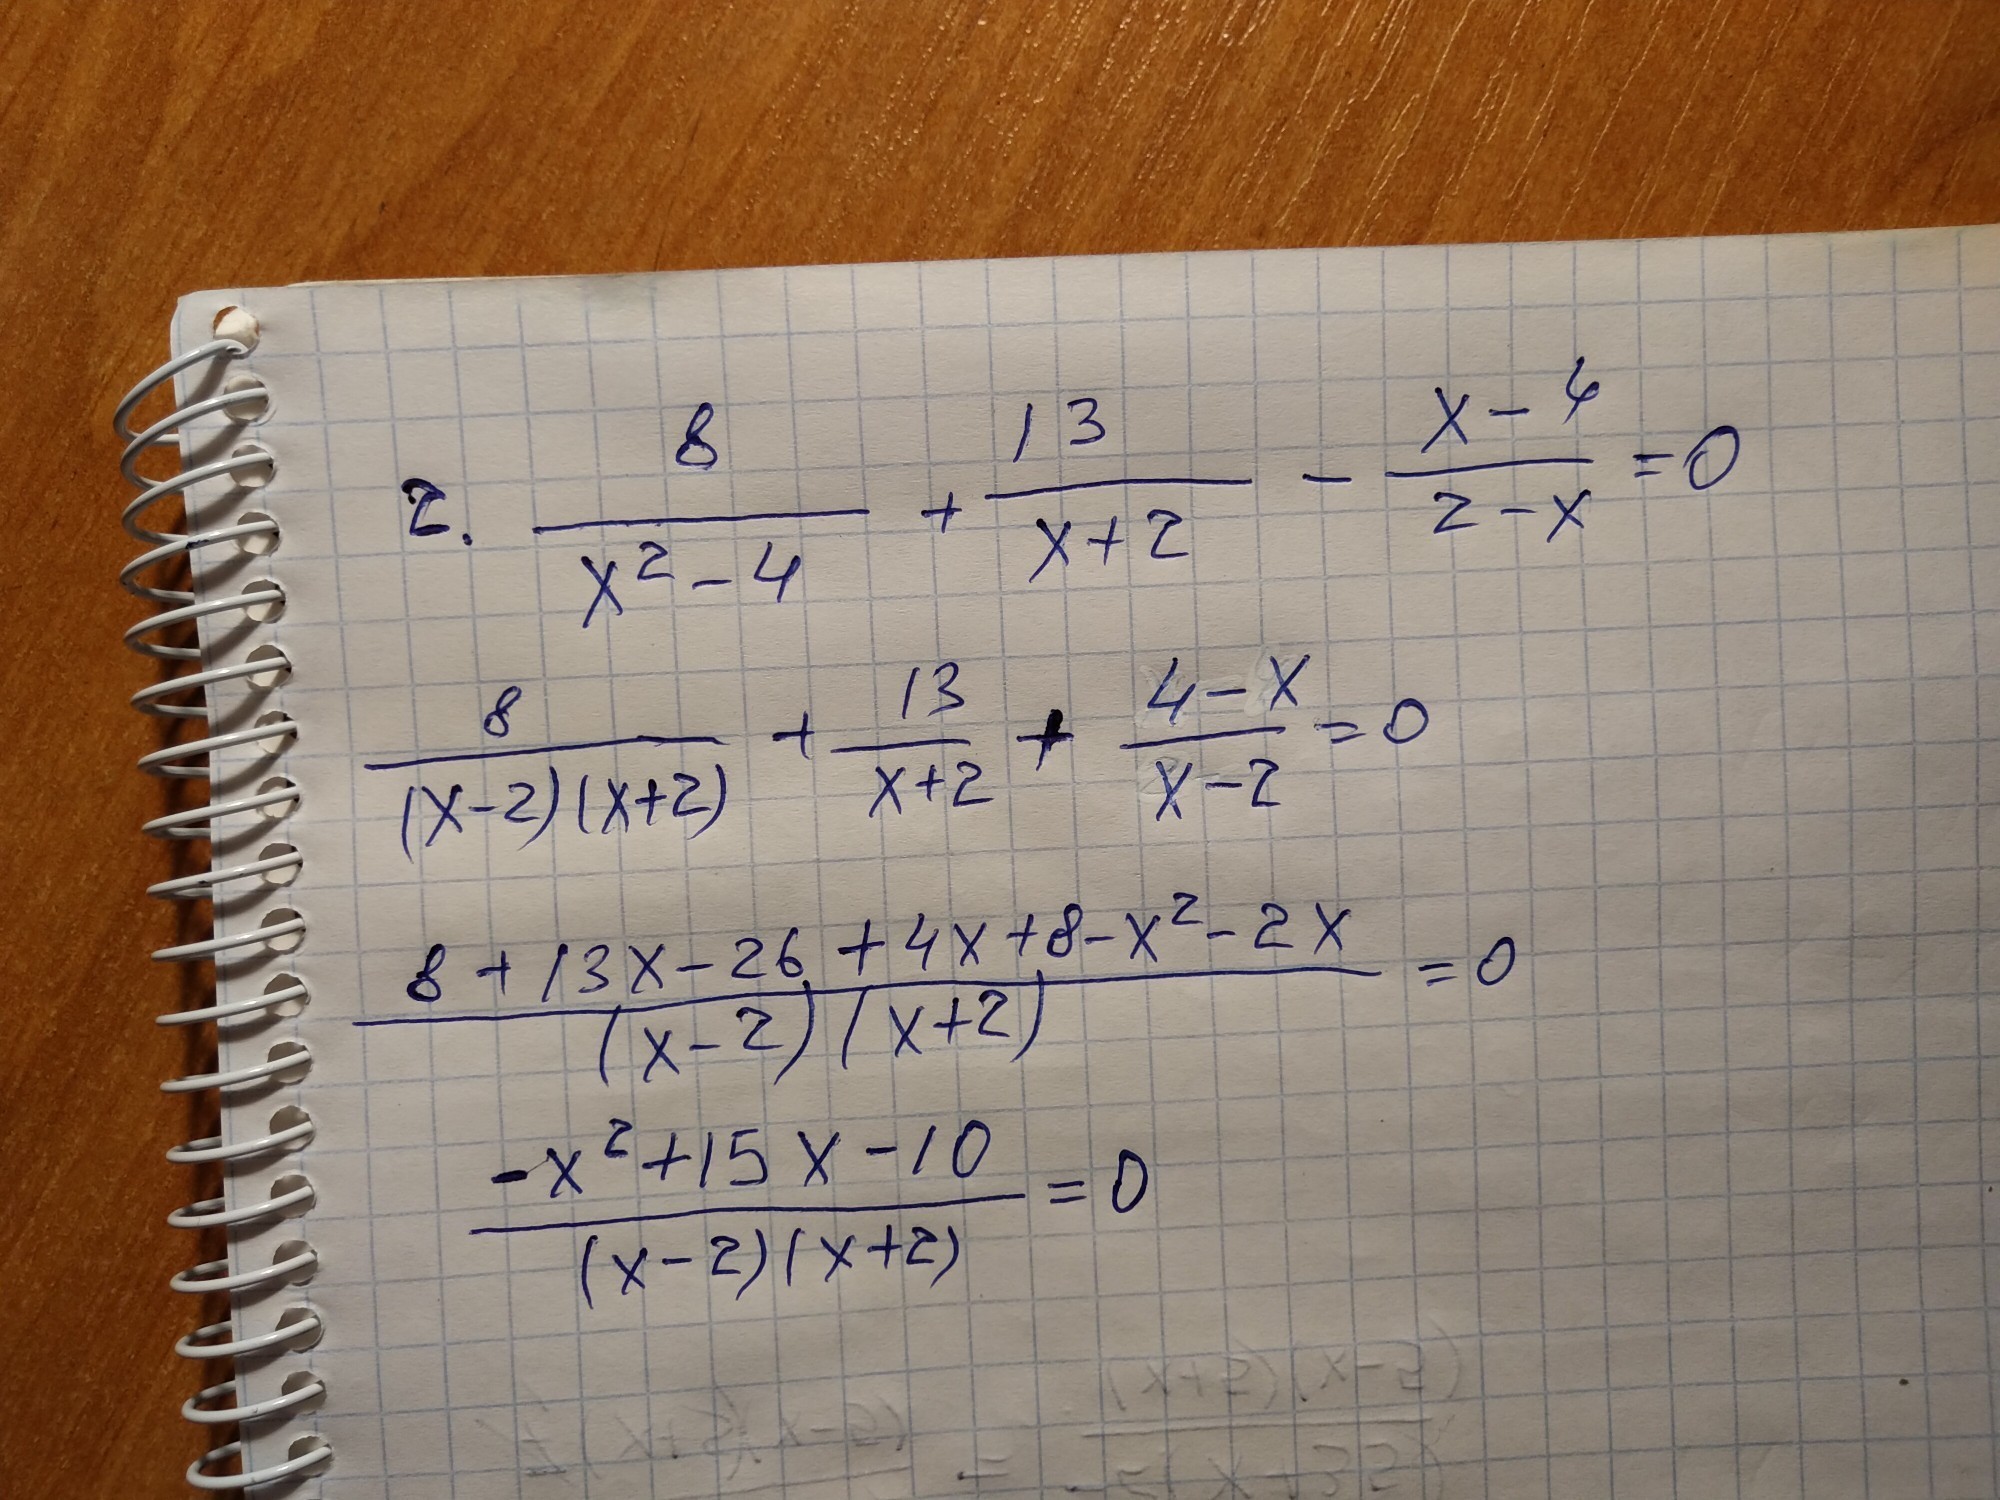 2. 8/(x²-4) + 13/(x+2) - (x-4)/(2-x) = 0
8/((x-2)(x+2)) + 13/(x+2) + (4-x)/(x-2) = 0
(8+13x-26+4x+8-x²-2x)/((x-2)(x+2)) = 0
(-x²+15x-10)/((x-2)(x+2)) = 0